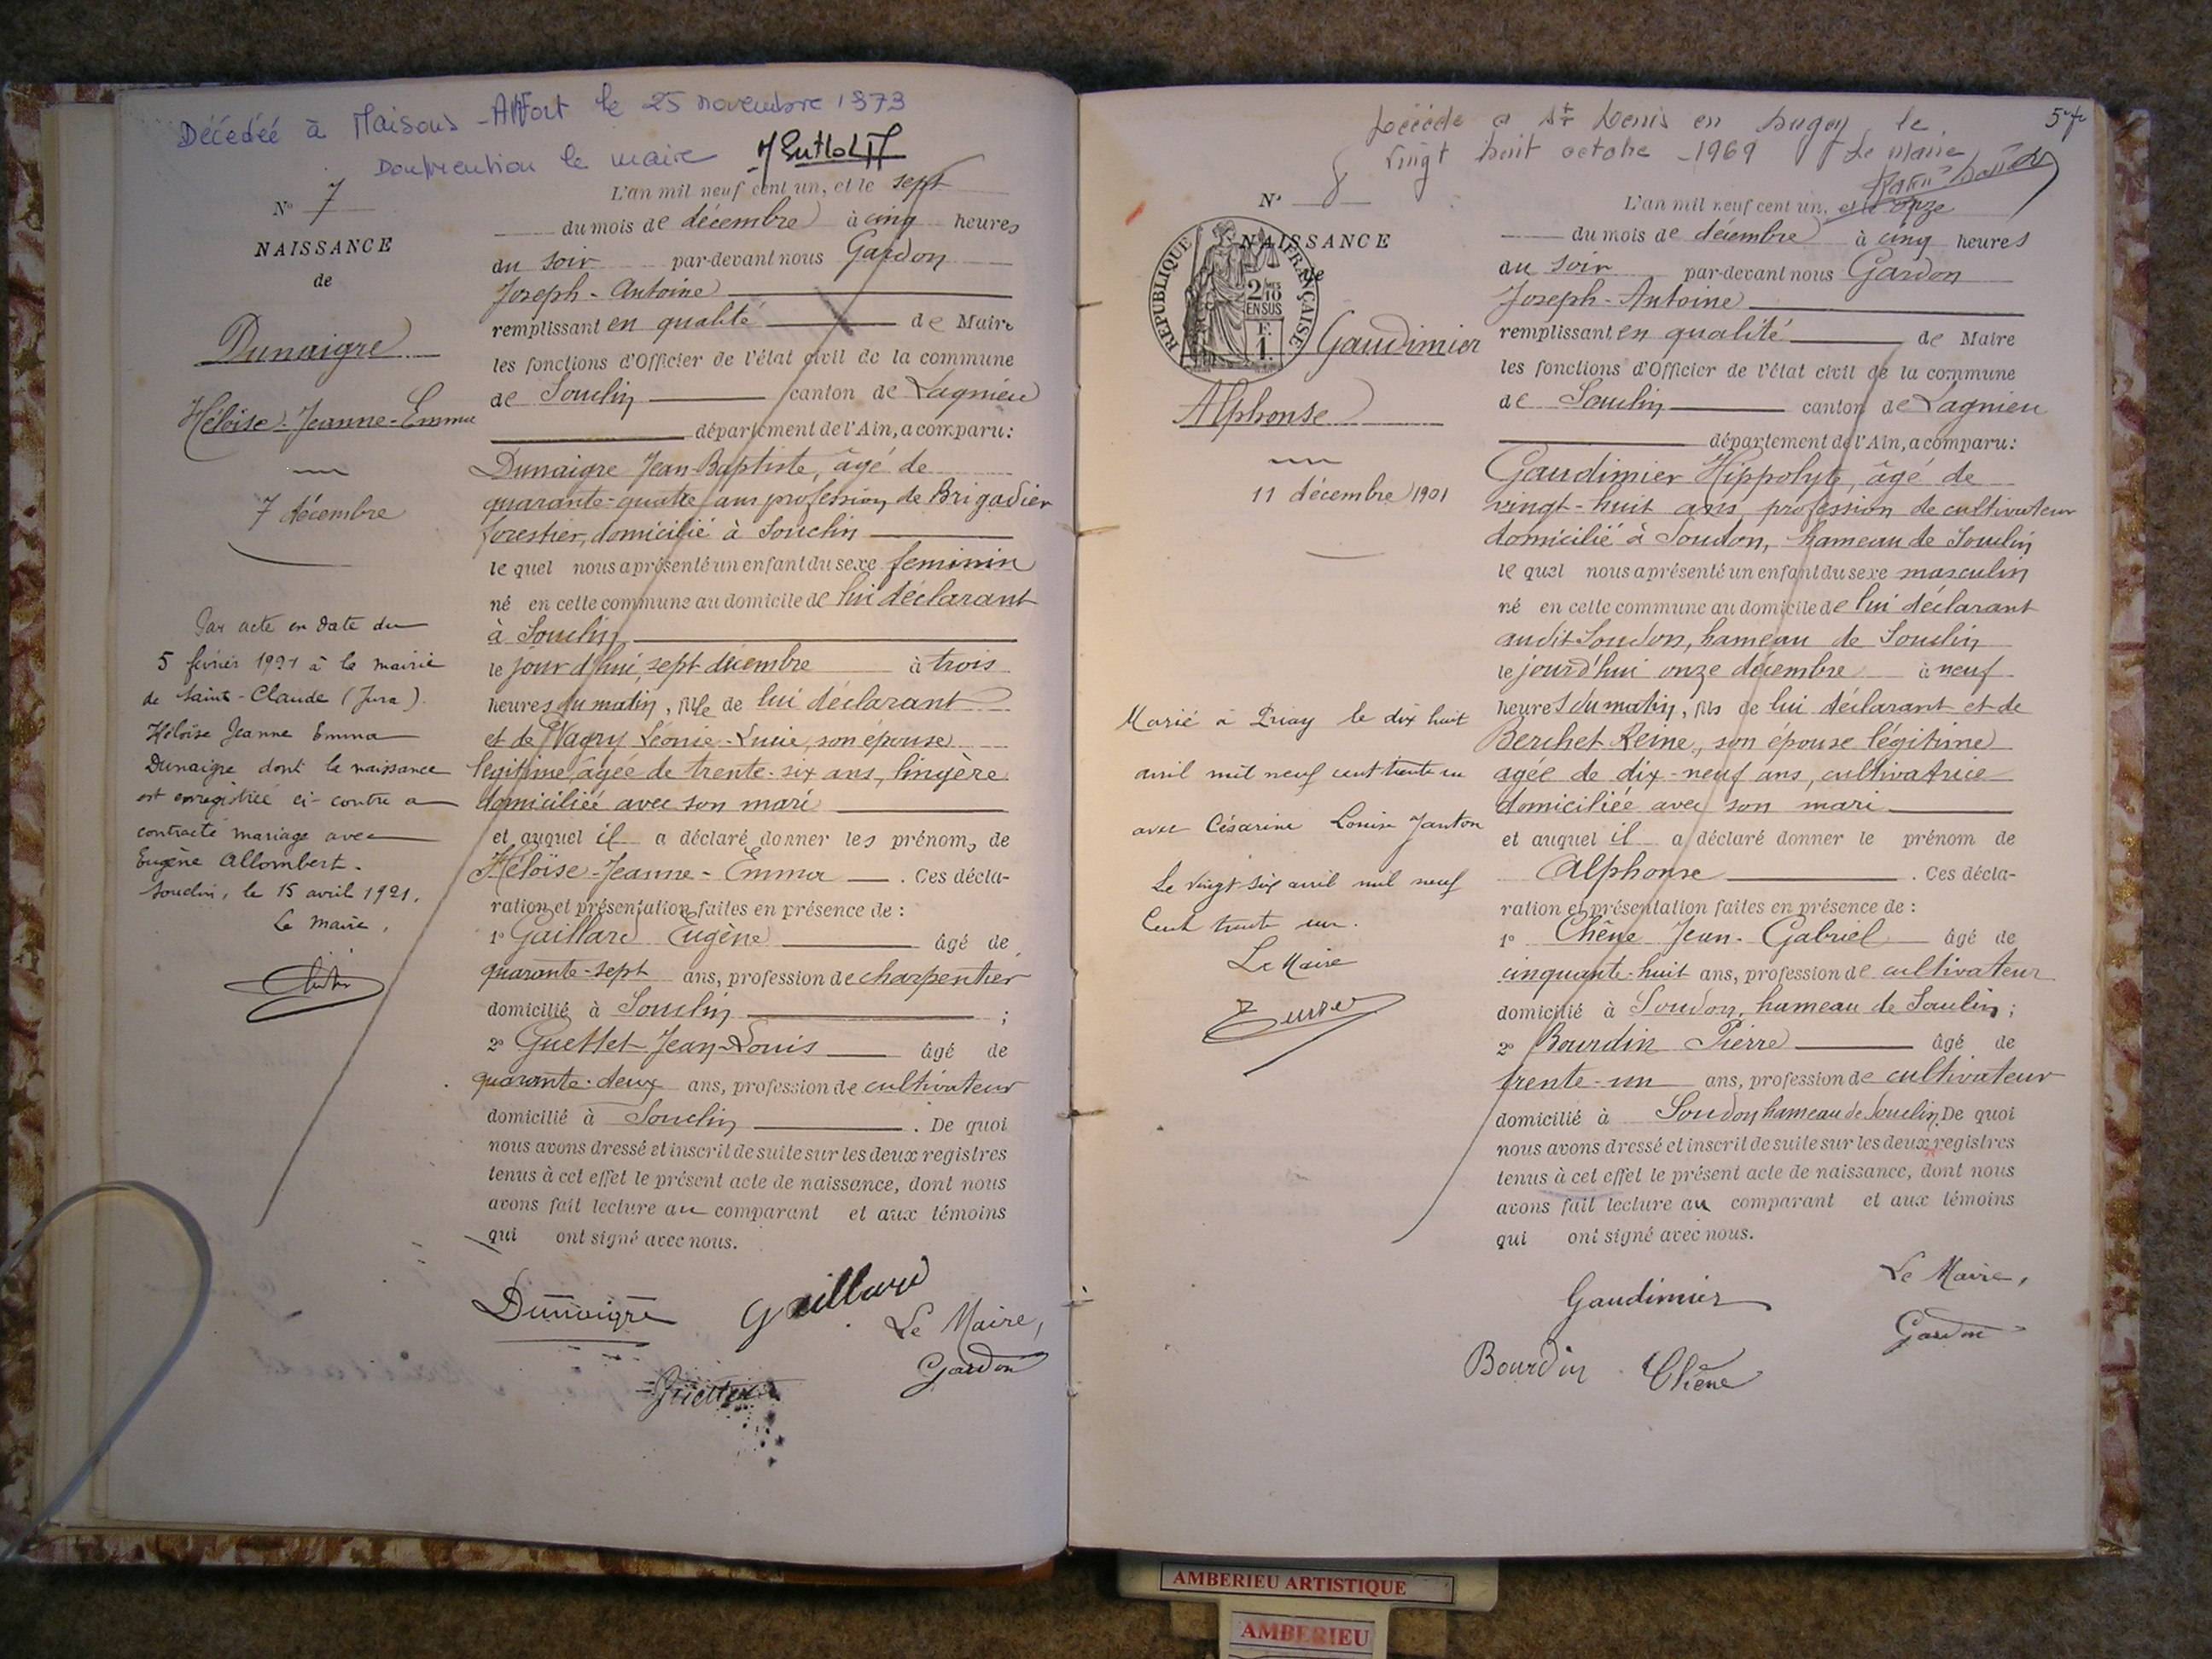 Décédée à Maisons-Alfort le 25 novembre 1973
le maire
N° 7
NAISSANCE
de
Dunaigre
Héloïse-Jeanne-Emma
7 décembre
Par acte en date du
5 février 1921 à la mairie
de Saint-Claude (Jura)
Héloïse Jeanne Emma
Dunaigre dont la naissance
est enregistrée ci-contre a
contracté mariage avec
Eugène Allombert.
Souclin, le 15 avril 1921.
Le Maire,
L'an mil neuf cent un, et le sept
du mois de décembre à cinq heures
du soir par-devant nous Gardon
Joseph-Antoine
remplissant en qualité de Maire
les fonctions d'Officier de l'état civil de la commune
de Souclin canton de Lagnieu
département de l'Ain, a comparu:
Dunaigre Jean-Baptiste, âgé de
quarante-quatre ans profession de Brigadier
forestier, domicilié à Souclin
le quel nous a présenté un enfant du sexe feminin
né en cette commune au domicile de lui déclarant
à Souclin
le jour d'hui, sept décembre à trois
heures du matin, fille de lui déclarant
et de Vagry Léonie-Lucie, son épouse
legitime, âgée de trente-six ans, lingère
domiciliée avec son mari
et auquel il a déclaré donner les prénoms de
Héloïse-Jeanne-Emma. Ces décla-
ration et présentation faites en présence de :
1° Gaillard Eugène âgé de
quarante-sept ans, profession de charpentier
domicilié à Souclin ;
2° Guettet Jean-Louis âgé de
quarante-deux ans, profession de cultivateur
domicilié à Souclin. De quoi
nous avons dressé et inscrit de suite sur les deux registres
tenus à cet effet le présent acte de naissance, dont nous
avons fait lecture au comparant et aux témoins
qui ont signé avec nous.
Dunaigre Gaillard
Le Maire,
Gardon
Guettet
5e f.
Décédé à St Denis en Bugey le
vingt huit octobre 1969 Le Maire
N° 8
NAISSANCE
de
RÉPUBLIQUE FRANÇAISE
2/10
EN SUS
F.
1.
Gaudimier
Alphonse
11 décembre 1901
Marié à Priay le dix huit
avril mil neuf cent trente un
avec Césarine Louise Janton
Le vingt-six avril mil neuf
Cent trente un.
Le Maire
L'an mil neuf cent un, et le onze
du mois de décembre à cinq heures
du soir par-devant nous Gardon
Joseph-Antoine
remplissant en qualité de Maire
les fonctions d'Officier de l'état civil de la commune
de Souclin canton de Lagnieu
département de l'Ain, a comparu:
Gaudimier Hippolyte, âgé de
vingt-huit ans, profession de cultivateur
domicilié à Soudon, hameau de Souclin
le quel nous a présenté un enfant du sexe masculin
né en cette commune au domicile de lui déclarant
audit Soudon, hameau de Souclin
le jourd'hui onze décembre à neuf
heures du matin, fils de lui déclarant et de
Berchet Reine, son épouse légitime
agée de dix-neuf ans, cultivatrice
domiciliée avec son mari
et auquel il a déclaré donner le prénom de
Alphonse. Ces décla-
ration et présentation faites en présence de :
1° Chêne Jean-Gabriel âgé de
cinquante-huit ans, profession de cultivateur
domicilié à Soudon, hameau de Souclin;
2° Bourdin Pierre âgé de
trente-un ans, profession de cultivateur
domicilié à Soudon hameau de Souclin. De quoi
nous avons dressé et inscrit de suite sur les deux registres
tenus à cet effet le présent acte de naissance, dont nous
avons fait lecture au comparant et aux témoins
qui ont signé avec nous.
Le Maire,
Gaudimier
Gardon
Bourdin Chêne
AMBERIEU ARTISTIQUE
AMBERIEU